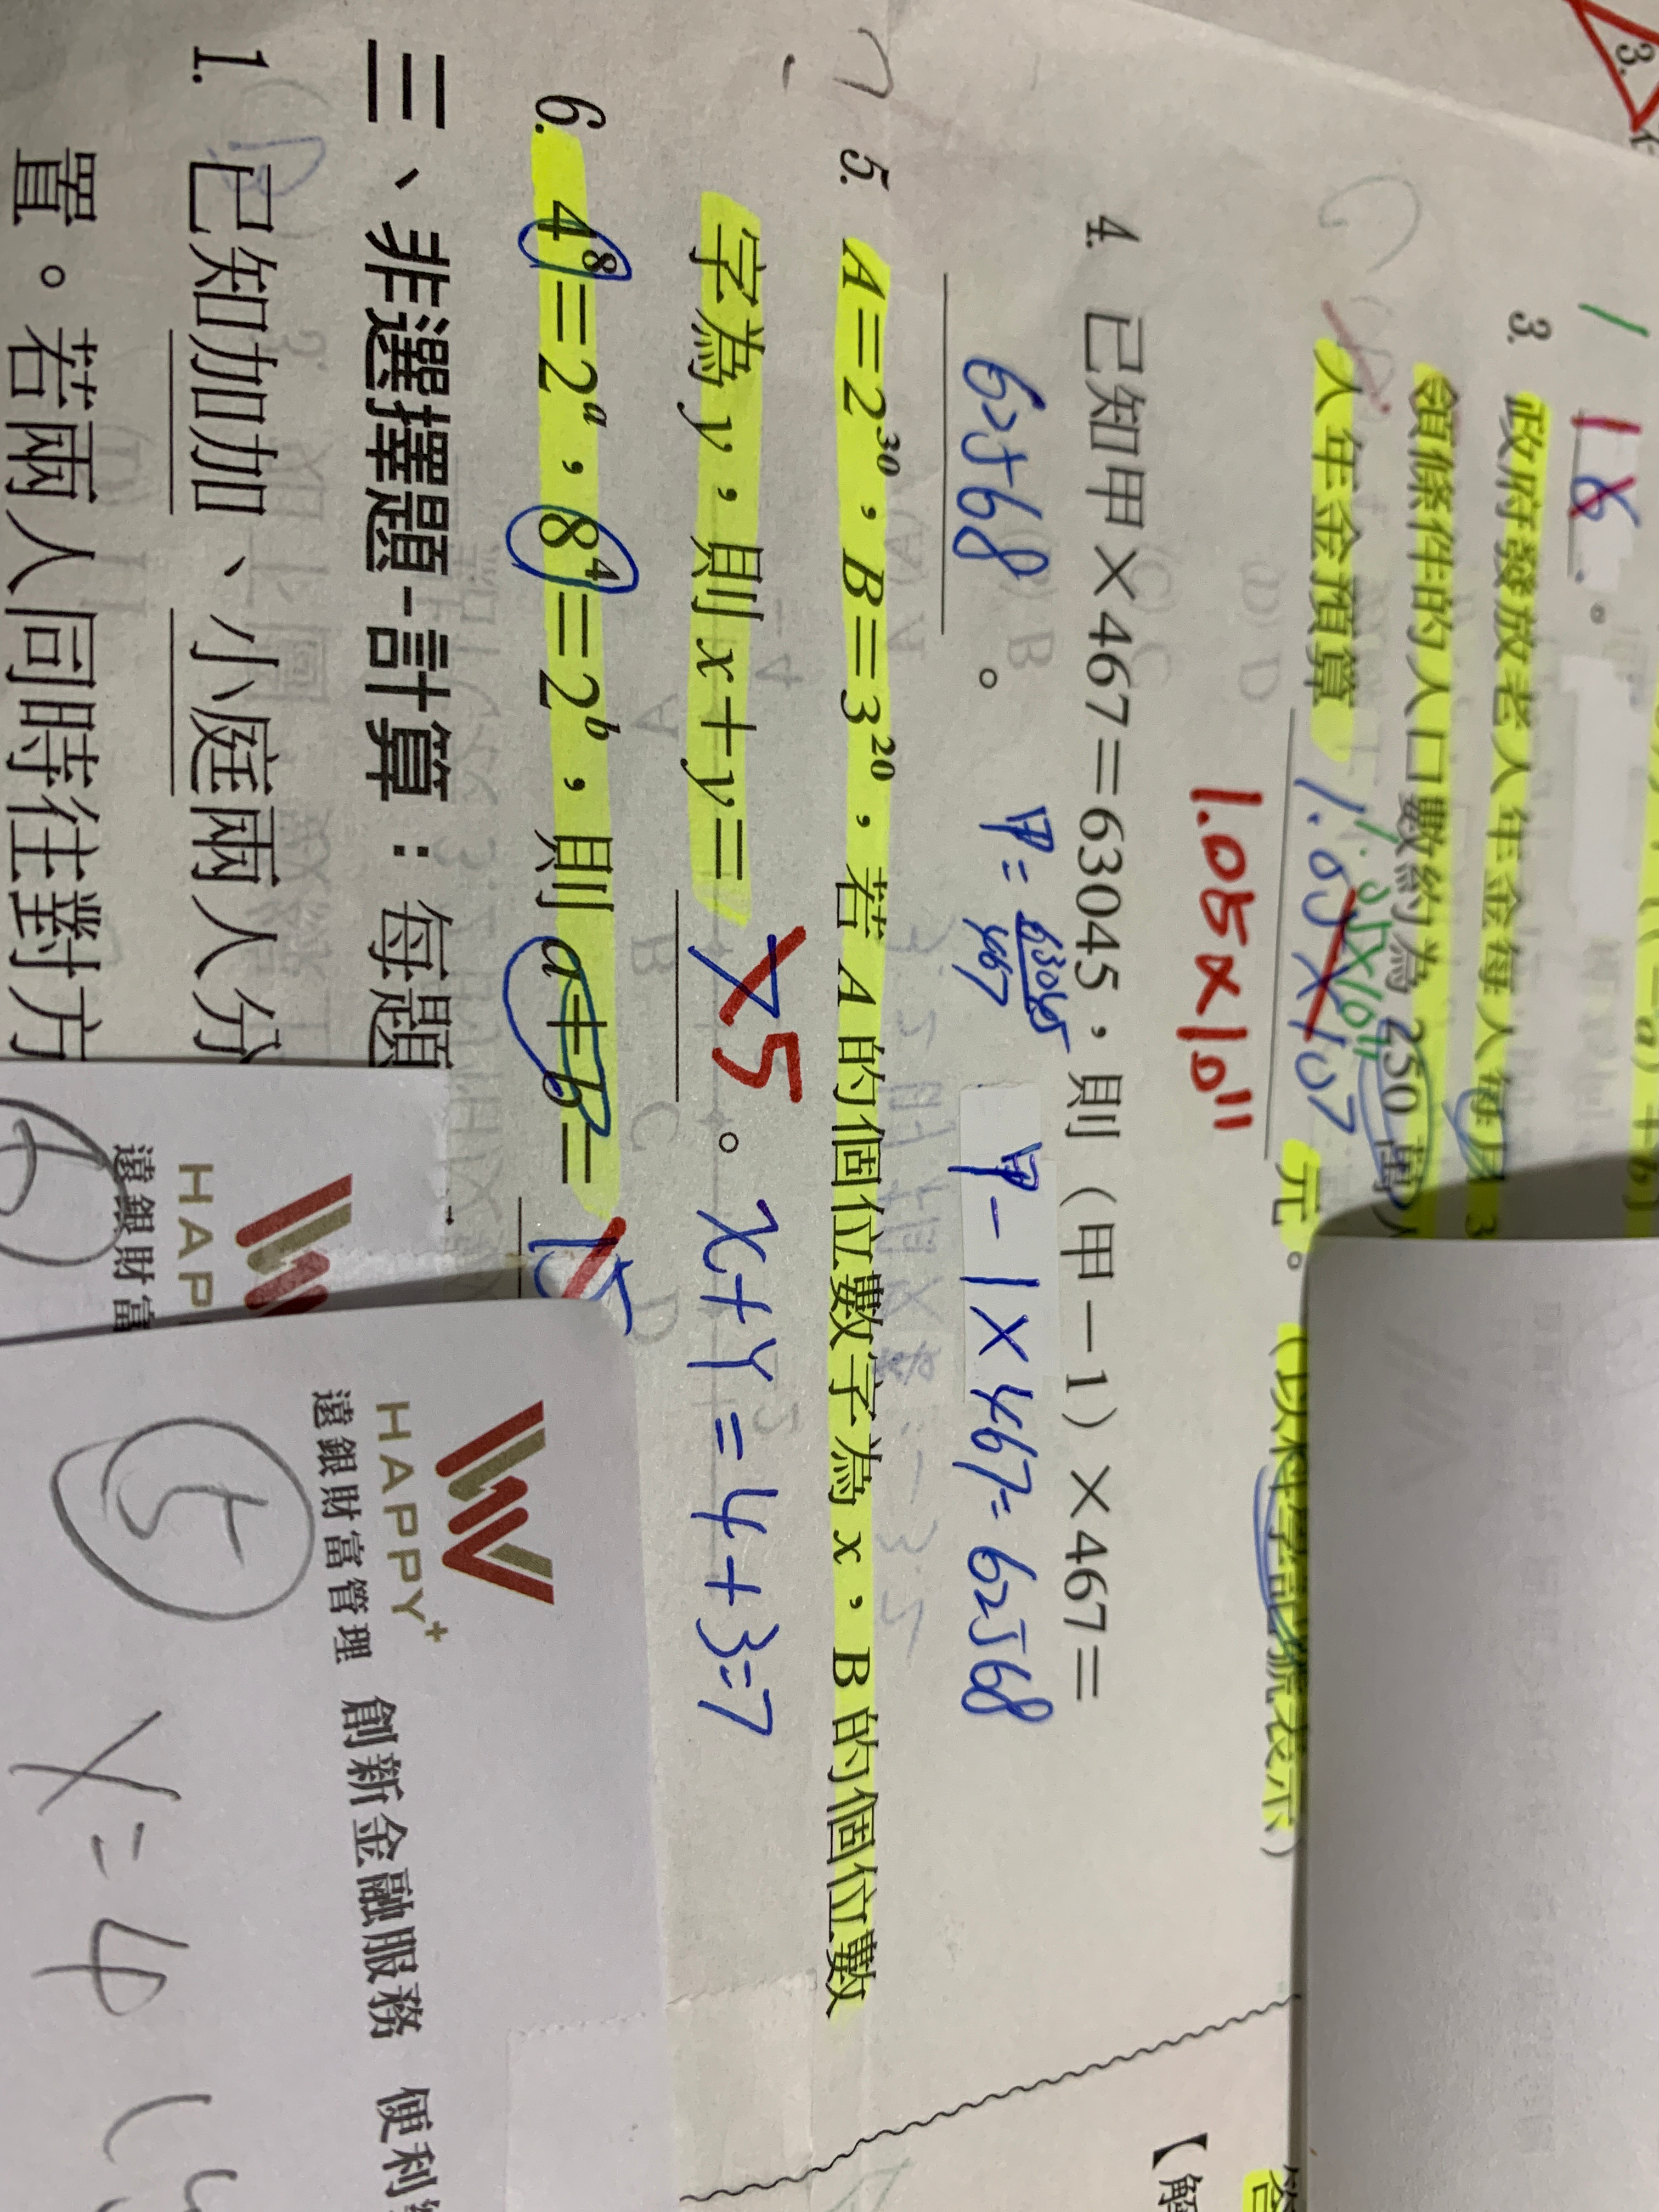 3.
1 8 。
3. 政府發放老人年金每人每月 3
領條件的人口數約為 250 萬人
人年金預算 1.05×10⁷ 元。(以科學記號表示)
1.05×10¹¹
4. 已知甲×467=63045,則(甲-1)×467=
62568 。 甲= 63045/467 甲-1×467=62568
5. A=2³⁰,B=3²⁰,若 A 的個位數字為 x,B 的個位數
字為 y,則 x+y= 7 5 。 x+y=4+3=7
6. 4⁸=2ᵃ,8⁴=2ᵇ,則 a+b= 15
三、非選擇題-計算:每題
1. 已知加加、小庭兩人分
置。若兩人同時往對方
HAP
遠銀財富
HAPPY⁺
遠銀財富管理 創新金融服務 便利
5
x=4
【解
答